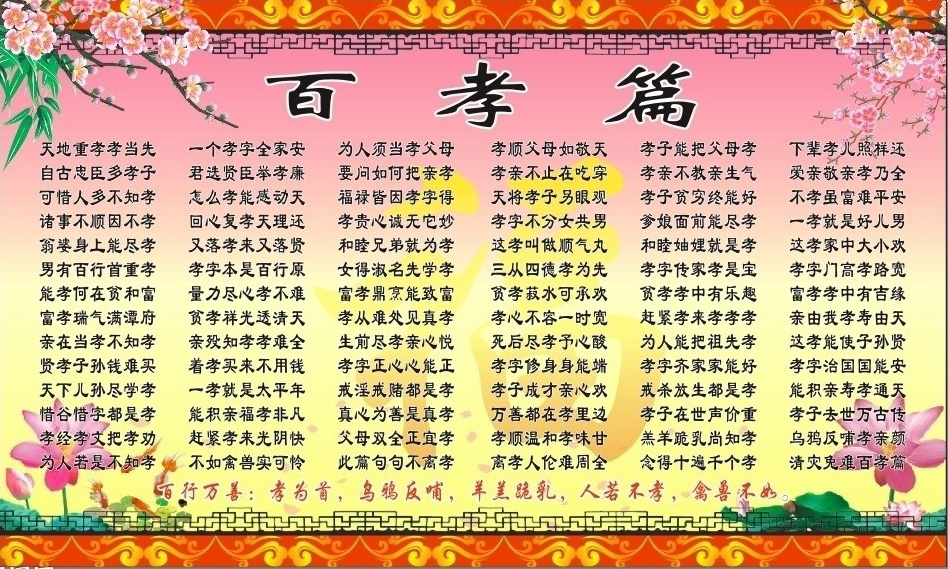 百孝篇
天地重孝孝当先 一个孝字全家安 为人须当孝父母 孝顺父母如敬天 孝子能把父母孝 下辈孝儿照样还
自古忠臣多孝子 君选贤臣举孝廉 要问如何把亲孝 孝亲不止在吃穿 孝亲不教亲生气 爱亲敬亲孝乃全
可惜人多不知孝 怎么孝能感动天 福禄皆因孝字得 天将孝子另眼观 孝子贫穷终能好 不孝虽富难平安
诸事不顺因不孝 回心复孝天理还 孝贵心诚无它妙 孝字不分女共男 爹娘面前能尽孝 一孝就是好儿男
翁婆身上能尽孝 又落孝来又落贤 和睦兄弟就为孝 这孝叫做顺气丸 和睦妯娌就是孝 这孝家中大小欢
男有百行首重孝 孝字本是百行原 女得淑名先学孝 三从四德孝为先 孝字传家孝是宝 孝字门高孝路宽
能孝何在贫和富 量力尽心孝不难 富孝鼎烹能致富 贫孝菽水可承欢 贫孝孝中有乐趣 富孝孝中有吉缘
富孝瑞气满潭府 贫孝祥光透清天 孝从难处见真孝 孝心不容一时宽 赶紧孝来孝孝孝 亲由我孝寿由天
亲在当孝不知孝 亲殁知孝孝难全 生前尽孝亲心悦 死后尽孝予心酸 为人能把祖先孝 这孝能使子孙贤
贤孝子孙钱难买 着孝买来不用钱 孝字正心心能正 孝字修身身能端 孝字齐家家能好 孝字治国国能安
天下儿孙尽学孝 一孝就是太平年 戒淫戒赌都是孝 孝子成才亲心欢 戒杀放生都是孝 能积亲寿孝通天
惜谷惜字都是孝 能积亲福孝非凡 真心为善是真孝 万善都在孝里边 孝子在世声价重 孝子去世万古传
孝经孝文把孝劝 赶紧孝来光阴快 父母双全正宜孝 孝顺温和孝味甘 羔羊跪乳尚知孝 乌鸦反哺孝亲颜
为人若是不知孝 不如禽兽实可怜 此篇句句不离孝 离孝人伦难周全 念得十遍千个孝 消灾免难百孝篇
百行万善：孝为首，乌鸦反哺，羊羔跪乳，人若不孝，禽兽不如。